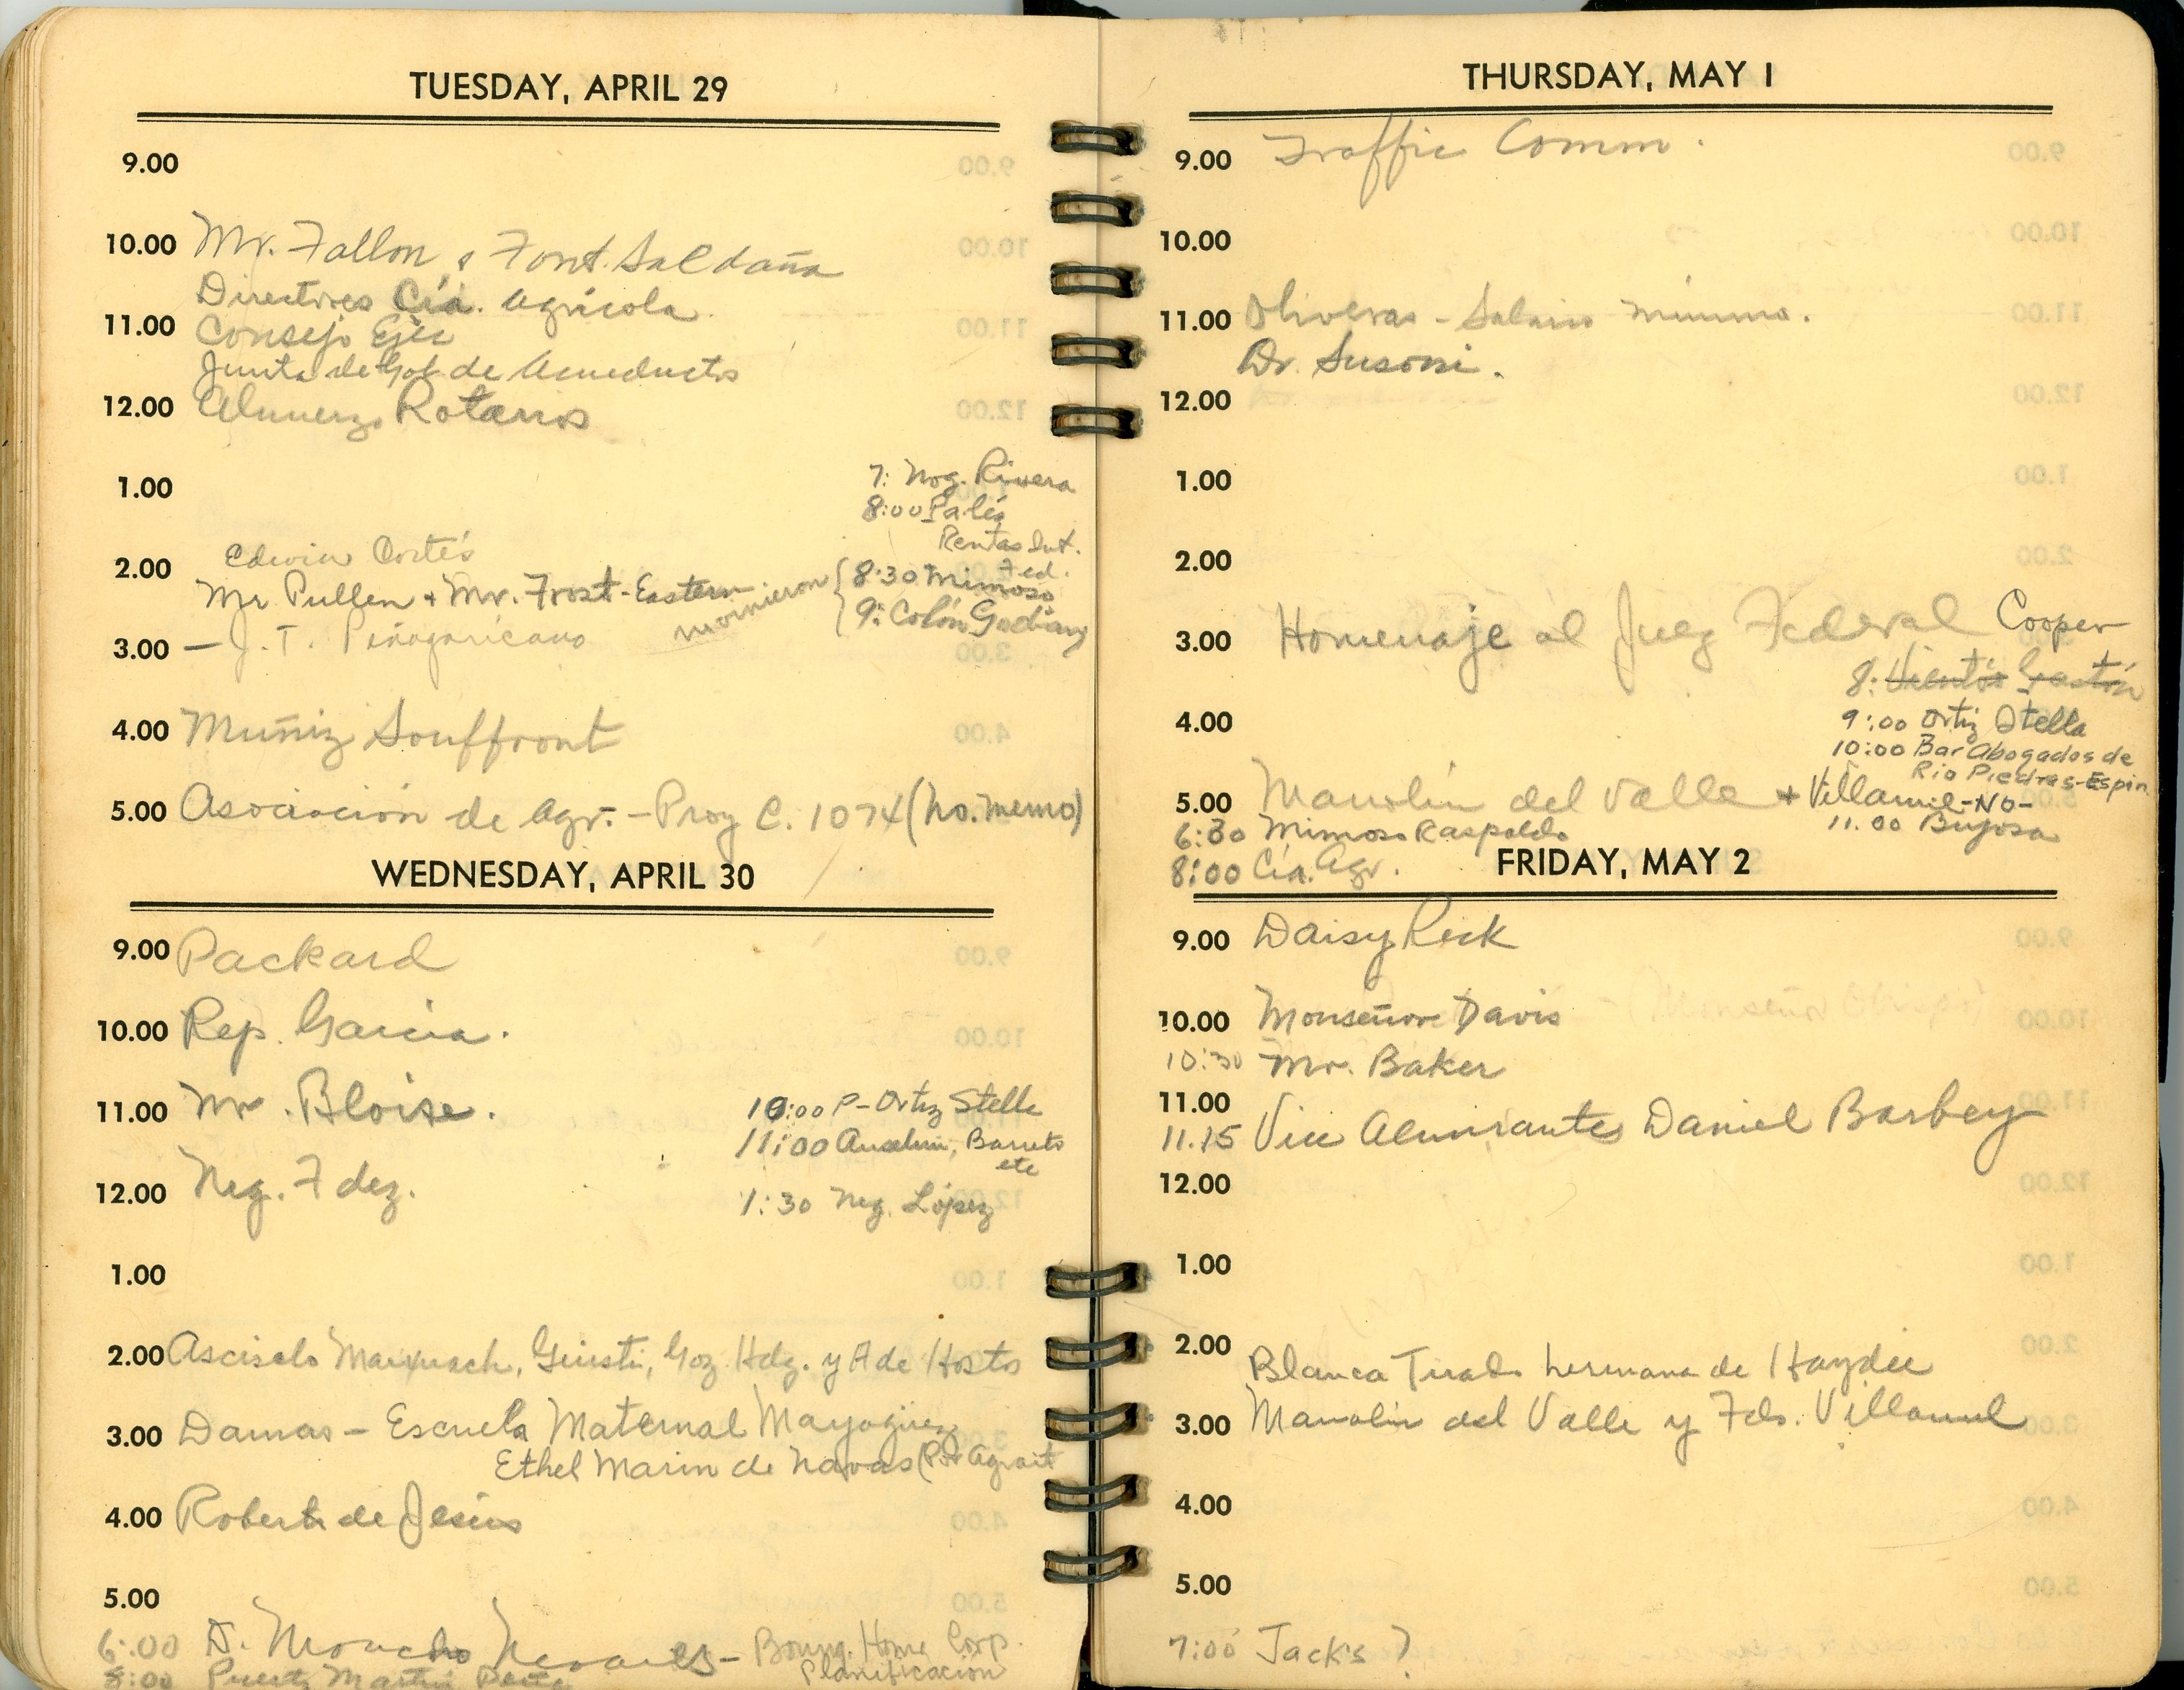 TUESDAY, APRIL 29
9.00
10.00 Mr. Fallon, & Font Saldaña
Directores Cía. Agrícola
11.00 Consejo Ejec
Junta de Gob de Acueductos
12.00 Almuerzo Rotarios
1.00
7: Nog. Rivera
8:00 Palés
Rentas Int.
Fed.
Edwin Cortés
2.00
Mr Pullen + Mr. Frost - Eastern
no vinieron { 8:30 Mimoso
9: Colón Gordiany
3.00 — J. T. Peñagaricano
4.00 Muñiz Souffront
5.00 Asociación de Agr. - Proy C. 1074 (ho. memo)
WEDNESDAY, APRIL 30
9.00 Packard
10.00 Rep. Garcia.
11.00 Mr. Bloise.
10:00 P- Ortiz Stella
11:00 Anselmi, Barreto
etc
12.00 Neg. Fdez.
1:30 Neg. López
1.00
2.00 Asciselo Marxuach, Giusti, Goz Hdz. y A de Hostos
3.00 Damas - Escuela Maternal Mayagüez
Ethel Marin de Navas (P. Agrait
4.00 Roberto de Jesús
5.00
6:00 D. Moncho Nevares - Bourg. Home Corp.
Planificacion
8:00 Puerto Martín Peña
THURSDAY, MAY 1
9.00 Traffic Comm.
10.00
11.00 Oliveras - Salario mínimo.
Dr. Susoni.
12.00
1.00
2.00
3.00 Homenaje al Juez Federal Cooper
8: Vientós Gastón
4.00
9:00 Ortiz Stella
10:00 Bar Abogados de
Rio Piedras-Espin
5.00 Manolín del Valle + Villamil-NO-
11.00 Bujosa
6:30 Mimoso Raspaldo
8:00 Cía. Agr.
FRIDAY, MAY 2
9.00 Daisy Reck
10.00 Monseñor Davis
10:30 Mr. Baker
11.00
11.15 Vice Almirante Daniel Barbey
12.00
1.00
2.00
Blanca Tirado hermana de Haydee
3.00 Manolín del Valle y Fdo. Villamil
4.00
5.00
7:00 Jack's?